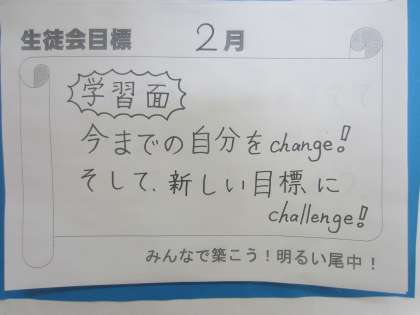 生徒会目標 2月
学習面
今までの自分をchange!
そして、新しい目標に
challenge!
みんなで築こう！明るい尾中！